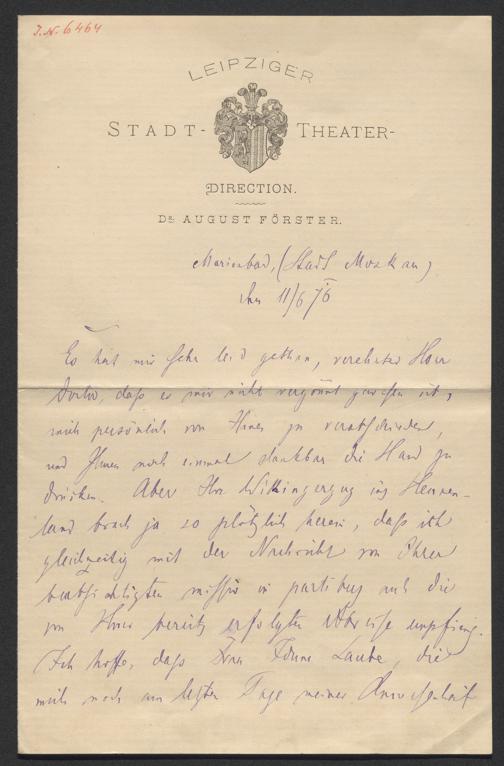 J.N. 6464
LEIPZIGER
STADT- THEATER-
DIRECTION.
DR. AUGUST FÖRSTER.
Marienbad, (Stadt Moskau)
den 11/6 76
Es hat mir sehr leid gethan, verehrter Herr
Doctor, daß es mir nicht vergönnt gewesen ist,
mich persönlich von Ihnen zu verabschieden,
und Ihnen noch einmal dankbar die Hand zu
drücken. Aber Ihr Wikingerzug ins Heiden-
land brach ja so plötzlich herein, daß ich
gleichzeitig mit der Nachricht von Ihrer
beabsichtigten missio in partibus auch die
von Ihrer bereits erfolgten Abreise empfing.
Ich hoffe, daß Frau Iduna Laube, die
mich noch am letzten Tage meiner Anwesenheit